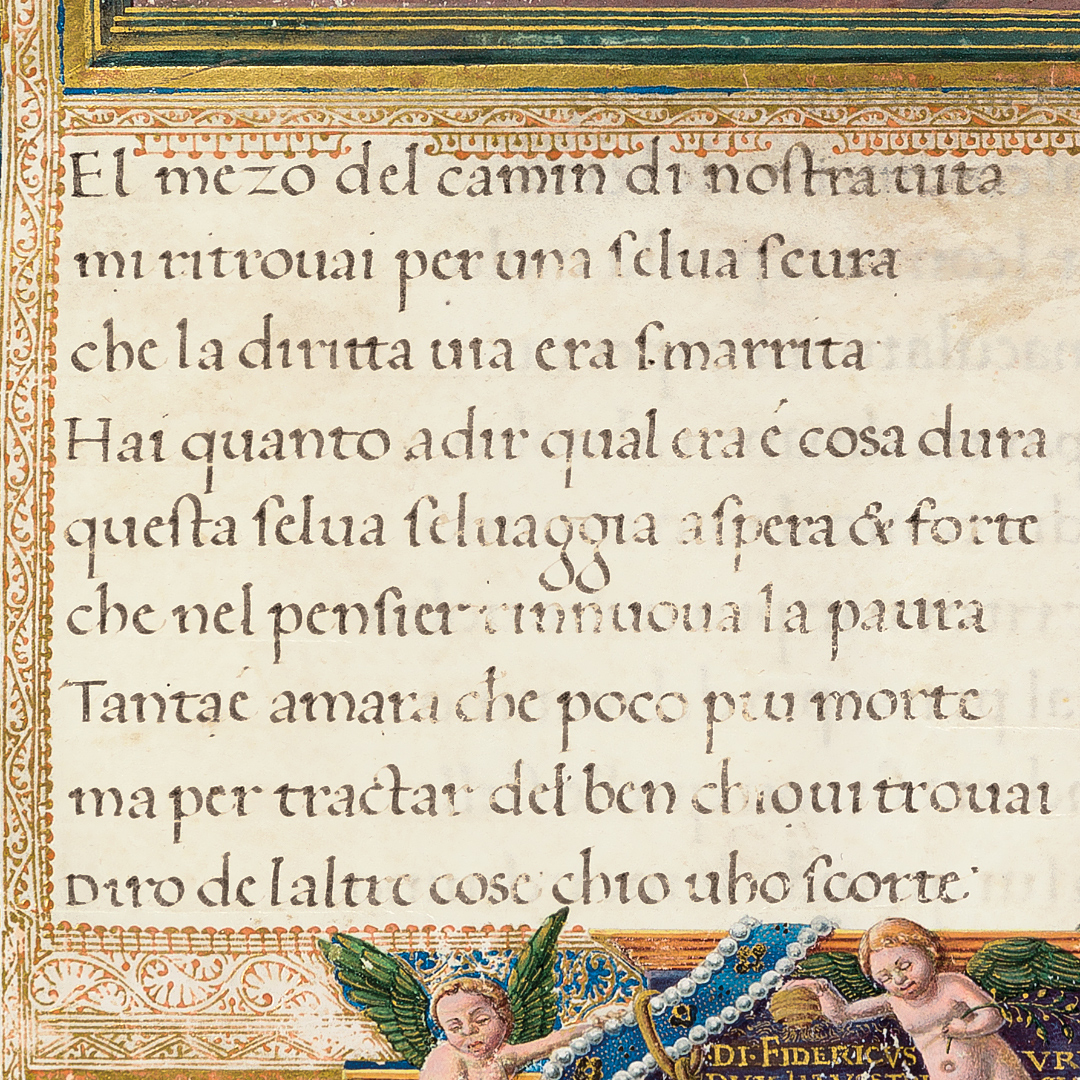 El mezo del camin di noſtra uita
mi ritrouai per una ſelua ſcura
che la diritta uia era ſmarrita
Hai quanto adir qual era é cosa dura
queſta ſelua ſeluaggia aſpera & forte
che nel penſier rinnuoua la paura
Tantaé amara che poco piu morte
ma per tractar del ben chioui trouai
Diro de laltre cose chio uho ſcorte
DI·FIDERICVS VR